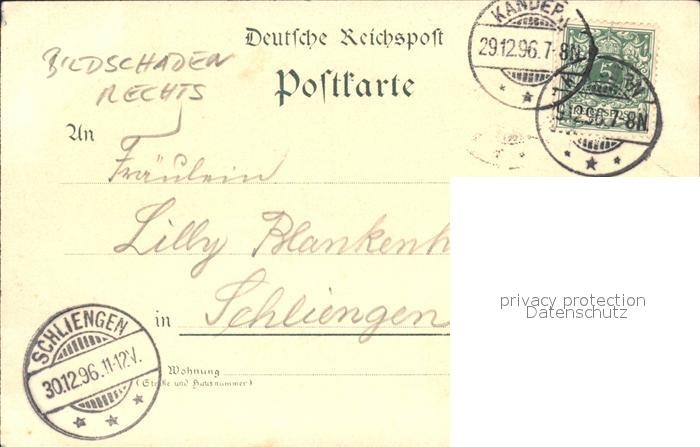 Deutsche Reichspost
Postkarte
BILDSCHADEN
RECHTS
KANDERN
29.12.96.7-8N.
5
9.12.96.7-8N
An
Fräulein
Lilly Blankenh
in Schliengen
privacy protection
Datenschutz
SCHLIENGEN
30.12.96.11-12V.
Wohnung
(Straße und Hausnummer)